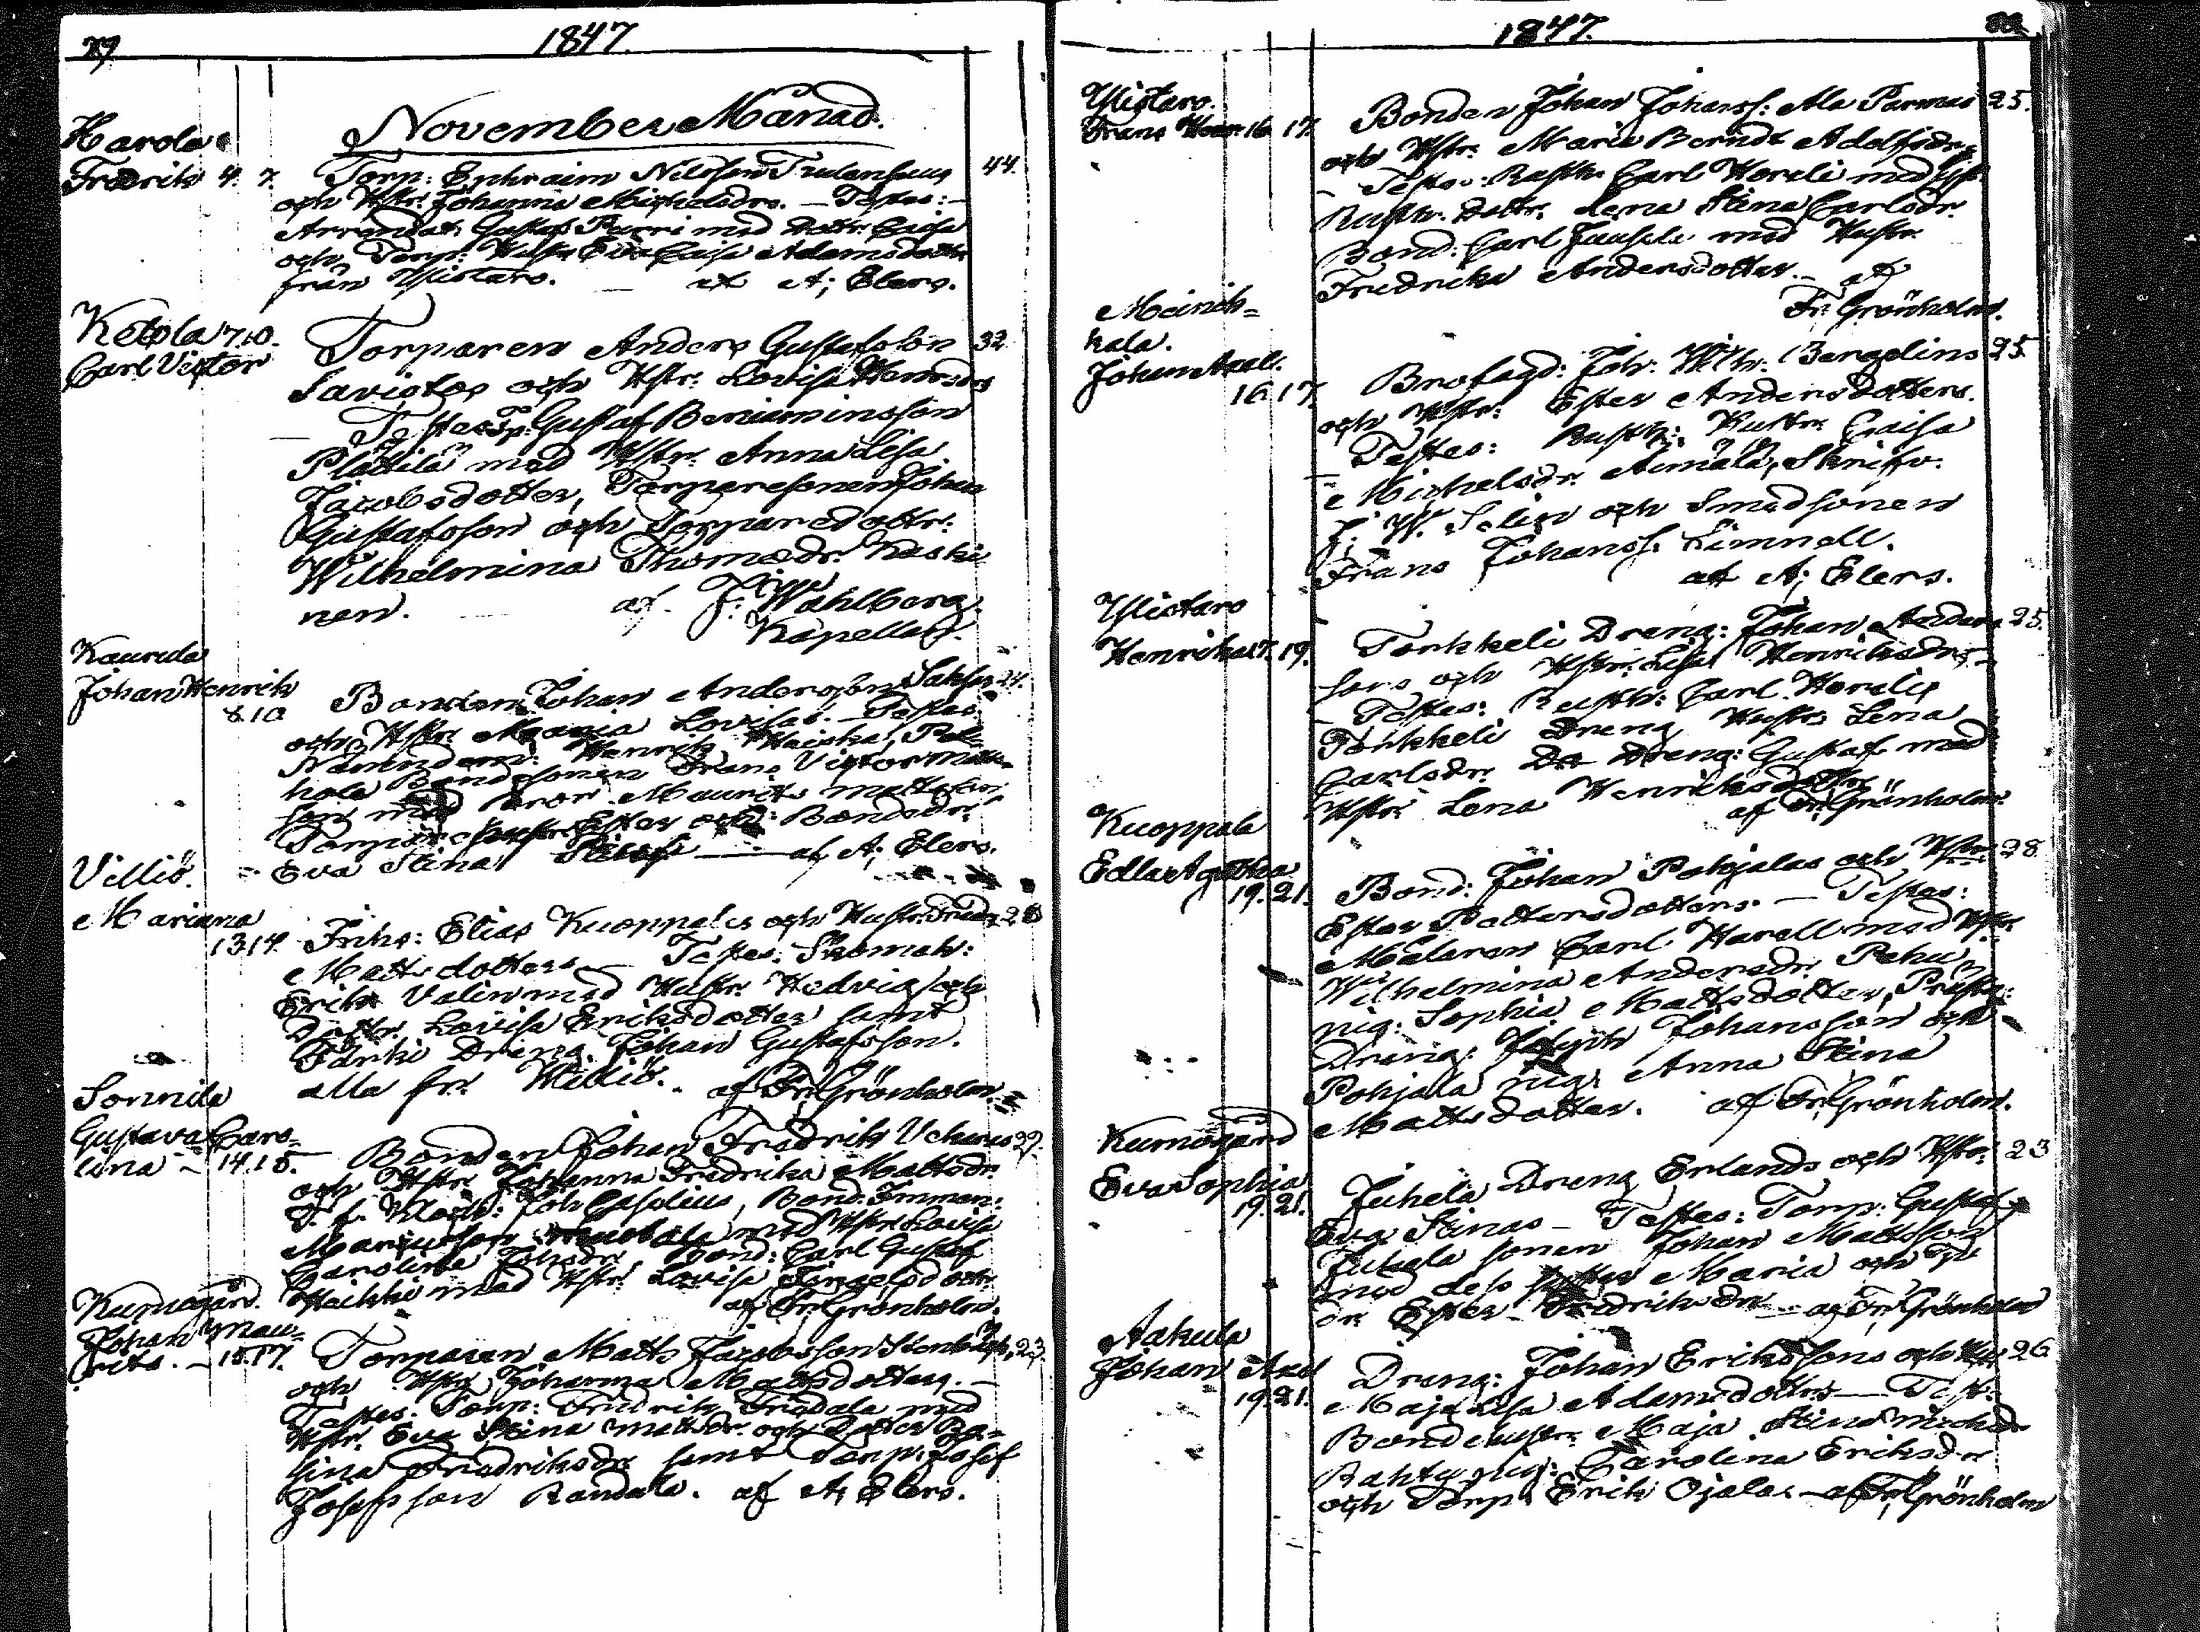 29
1847
November Månad.
Harola
Fredrik 4. 7.
Torp: Ephraim Nilsson 44.
och Hstr. Johanna Michelsdrs. — Testes: —
Arrendat: Gustaf Parri med Dottr. Caisa
och Torp: Hustr Eva Caisa Adamsdotter
från Ylistaro. — af A; Elers.
Ketola 7.10.
Carl Victor
Torparen Anders Gustafsson 32
Savistos och Hstr. Lovisa Henrsdrs
— Testes: Tp: Gustaf Beniaminsson
Plättilä med Hstr. Anna Lisa
Jacobsdotter, Torparesonen Johan
Gustafsson och Torparedottr:
Wilhelmina Thomædr. Keski
nen. af J: Wahlberg.
Kapellan.
Kaurula
Johan Henrik
8.10
Bonden Johan Andersson 24.
och Hstr. Maria Lovisas. — Testes
Nämndem: Henrik
hola Bondesonen Frans Victor Matts
son med bror Maurits Mattsson
Torpar Hustr. Ester och Bondsdr.
Eva Stina — af A; Elers.
Villiö.
Mariana
13.14.
Inhs: Elias Kuoppalas och Hustr. Fredr 28
Mattsdotters — Testes: Skomak:
Erik Valin med Hustr. Hedvig och
Dottr. Lovisa Eriksdotter samt
Dreng Johan Gustafsson.
alla fr. Williö. af Fr. Grönholm
Sonnila
Gustava Caro-
lina — 14.15.
Bonden Johan Fredrik Uckurs 29.
och Hstr. Johanna Fredrika Mattsdr.
Joh Casselius, Bond. Imman:
med Hstr Lovisa
Carolina Johsdr. Bond: Carl Gustaf
Heikki med Hstr. Lovisa
af Fr. Grönholm.
Kumogård.
Johan Mau-
rits. — 15.17.
Torparen Matts Jacobsson 23.
och Hstr. Johanna Mattsdotters. —
Testes. Torp: Fredrik Fredala med
Hstr. Eva Stina Mattsdr. och Dotter
Fredriksdr. samt Torp: Josef
Josefsson Randala. af A; Elers.
1847.
Ylistaro.
Frans Henr. 16. 17.
Bonden Johan Johanss: Ala Parmas 25.
och Hstr. Maria Berndt Adolfsdr.
— Testes: Rusth. Carl Hordli med
Rusth. Dottr. Lena Stina Carlsdr.
Bond: Carl Jaussila med Hustr.
Fredrika Andersdotter. — af
Fr. Grönholm.
Meinik-
kala.
Johan Axel.
16 17.
Brofogd: Joh: Wilh: Bergelins 25.
och Hstr: Ester Andersdotters.
Testes: Rusth: Hustr. Caisa
Michelsdr. Aimälä, Skrifv.
J. W. Selin och Smedsonen
Frans Johanss. Limnell.
af A; Elers.
Ylistaro
Henrika 17. 19.
Torkkeli Dreng: Johan Anders 25.
sons och Hstr: Lisa Henriksdrs —
— Testes: Rusth: Carl Hordli
Torkkeli Dreng Hustr Lena
Carlsdr. Do Dreng: Gustaf med
Hstr Lena Henriksdotter
af Fr. Grönholm.
Kuoppala
Edla Agatha
19. 21.
Bond: Johan Pohjalas och Hstr 28
Ester Pettersdotters. — Testes:
Målaren Carl Harell med Hstr
Wilhelmina Andersdr.
pig: Sophia Mattsdotter,
Dreng: Johansson och
Pohjala pig. Anna Stina
Mattsdotter. af Fr. Grönholm.
Kumogård
Eva Sophia
19. 21.
Juhela Dreng Erlands och Hstr: 23
Eva Stinas — Testes: Torp: Gustaf
Juhela sonen Johan Mattsson
med dess Maria och
Ester Fredriksdr — af Fr. Grönholm
Aakula
Johan Axel
19. 21.
Dreng: Johan Erikssons och Hstr 26
Maja Lisa Adamsdotters — Test:
Bonde Hustr. Maja Stina
Rahtu pig: Carolina Eriksdr
och Torp: Erik Ojala — af Fr. Grönholm